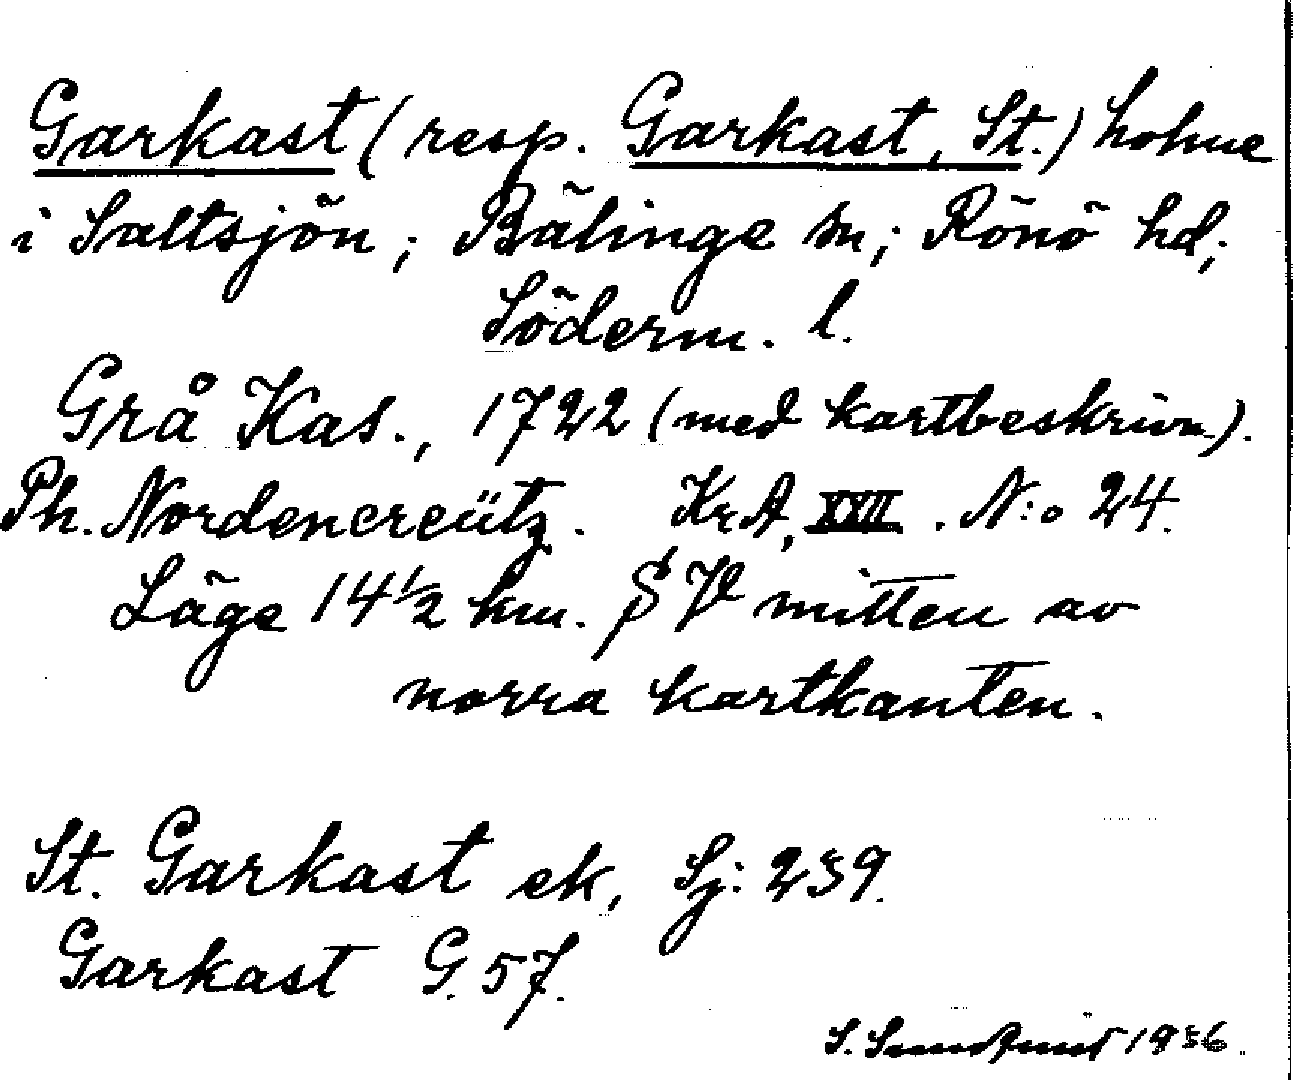 Garkast (resp. Garkast, St.) holme
i Saltsjön; Bälinge sn; Rönö hd;
Söderm. l.
Grå Kas., 1722 (med kartbeskrivn.).
Ph. Nordencreütz. KrA, XVII. N:o 24.
Läge 14 1/2 km. SV mitten av
norra kartkanten.
St. Garkast ek, Sj: 239.
Garkast G. 57.
S. Sundqvist 1936.